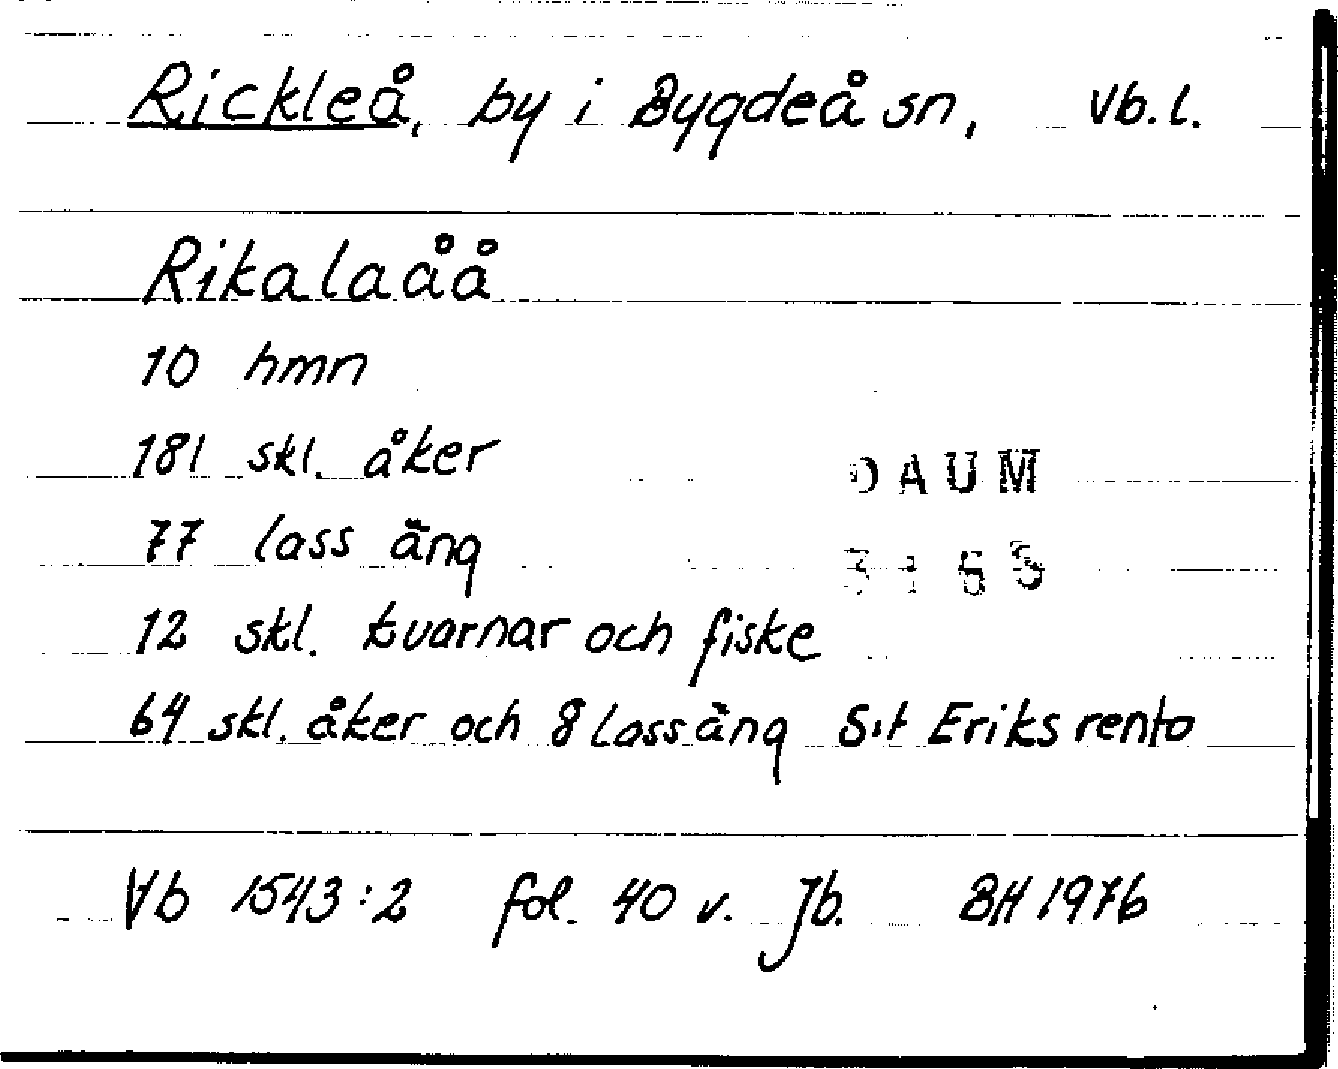 Rickleå, by i Bygdeå sn, Vb.l.
Rikalaåå
10 hmn
181 skl. åker
DAUM
77 lass äng
12 skl. kvarnar och fiske
64 skl. åker och 8 lass äng S:t Eriks rento
Vb 1543:2 fol. 40 v. Jb. BH 1976